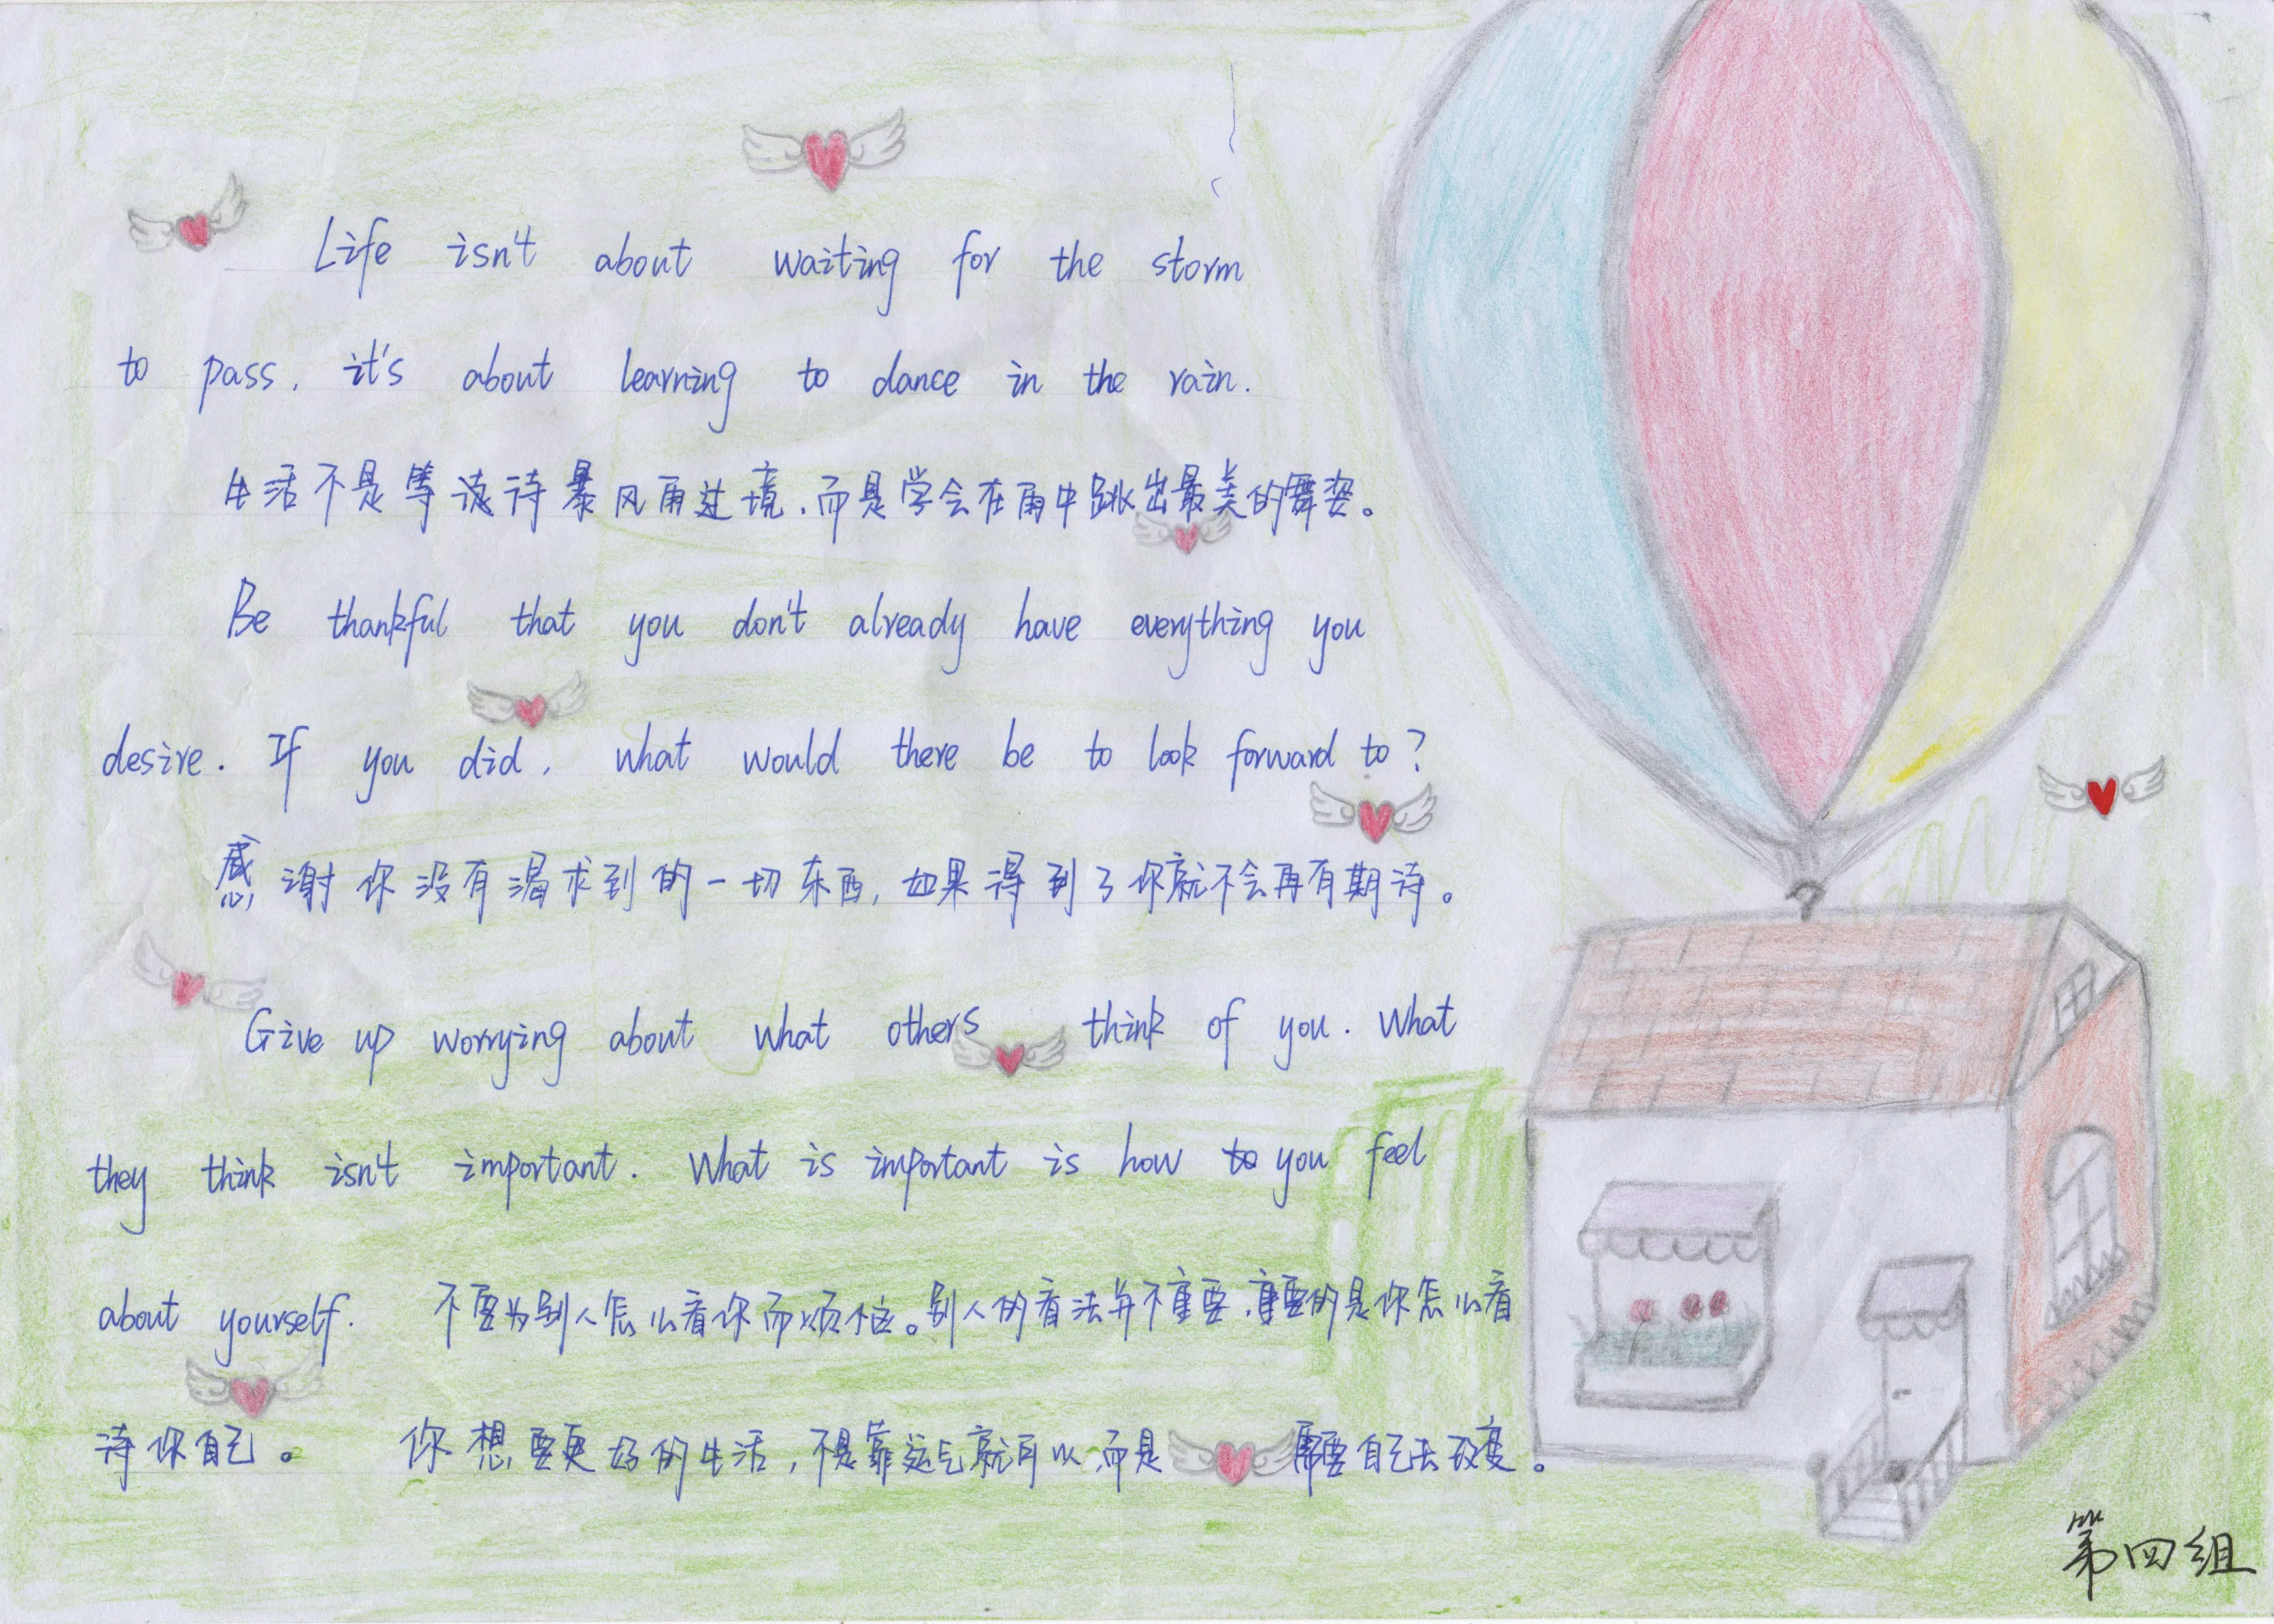 Life isn't about waiting for the storm
to pass, it's about learning to dance in the rain.
生活不是等待暴风雨过境,而是学会在雨中跳出最美的舞姿。
Be thankful that you don't already have everything you
desire. If you did, what would there be to look forward to?
感谢你没有渴求到的一切东西,如果得到了你就不会再有期待。
Give up worrying about what others think of you. What
they think isn't important. What is important is how you feel
about yourself. 不要为别人怎么看你而烦恼。别人的看法并不重要,重要的是你怎么看
待你自己。 你想要更好的生活,不是靠运气就可以,而是需要自己去改变。
第四组